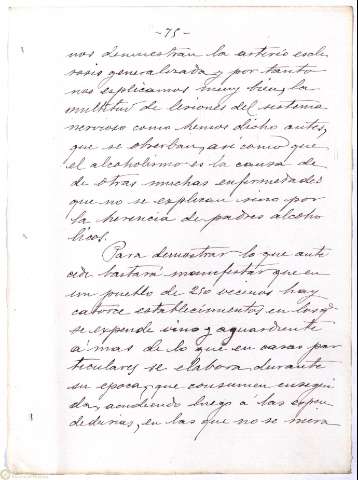 -75-
nos demuestran la arterio escle
rosis generalizada y por tanto
nos explicamos muy bien, la
multitud de lesiones del sistema
nervioso como hemos dicho antes,
que se observan, así como que
el alcoholismo es la causa de
de otras muchas enfermedades
que no se explican sino por
la herencia de padres alcoho
licos.
Para demostrar lo que ante
cede bastará manifestar que en
un pueblo de 250 vecinos hay
catorce establecimientos en los q.
se expende vino y aguardiente
á mas de lo que en casas par
ticulares se elabora durante
su epoca, que consumen ensegui
da, acudiendo luego á las expen
dedurias, en las que no se mira